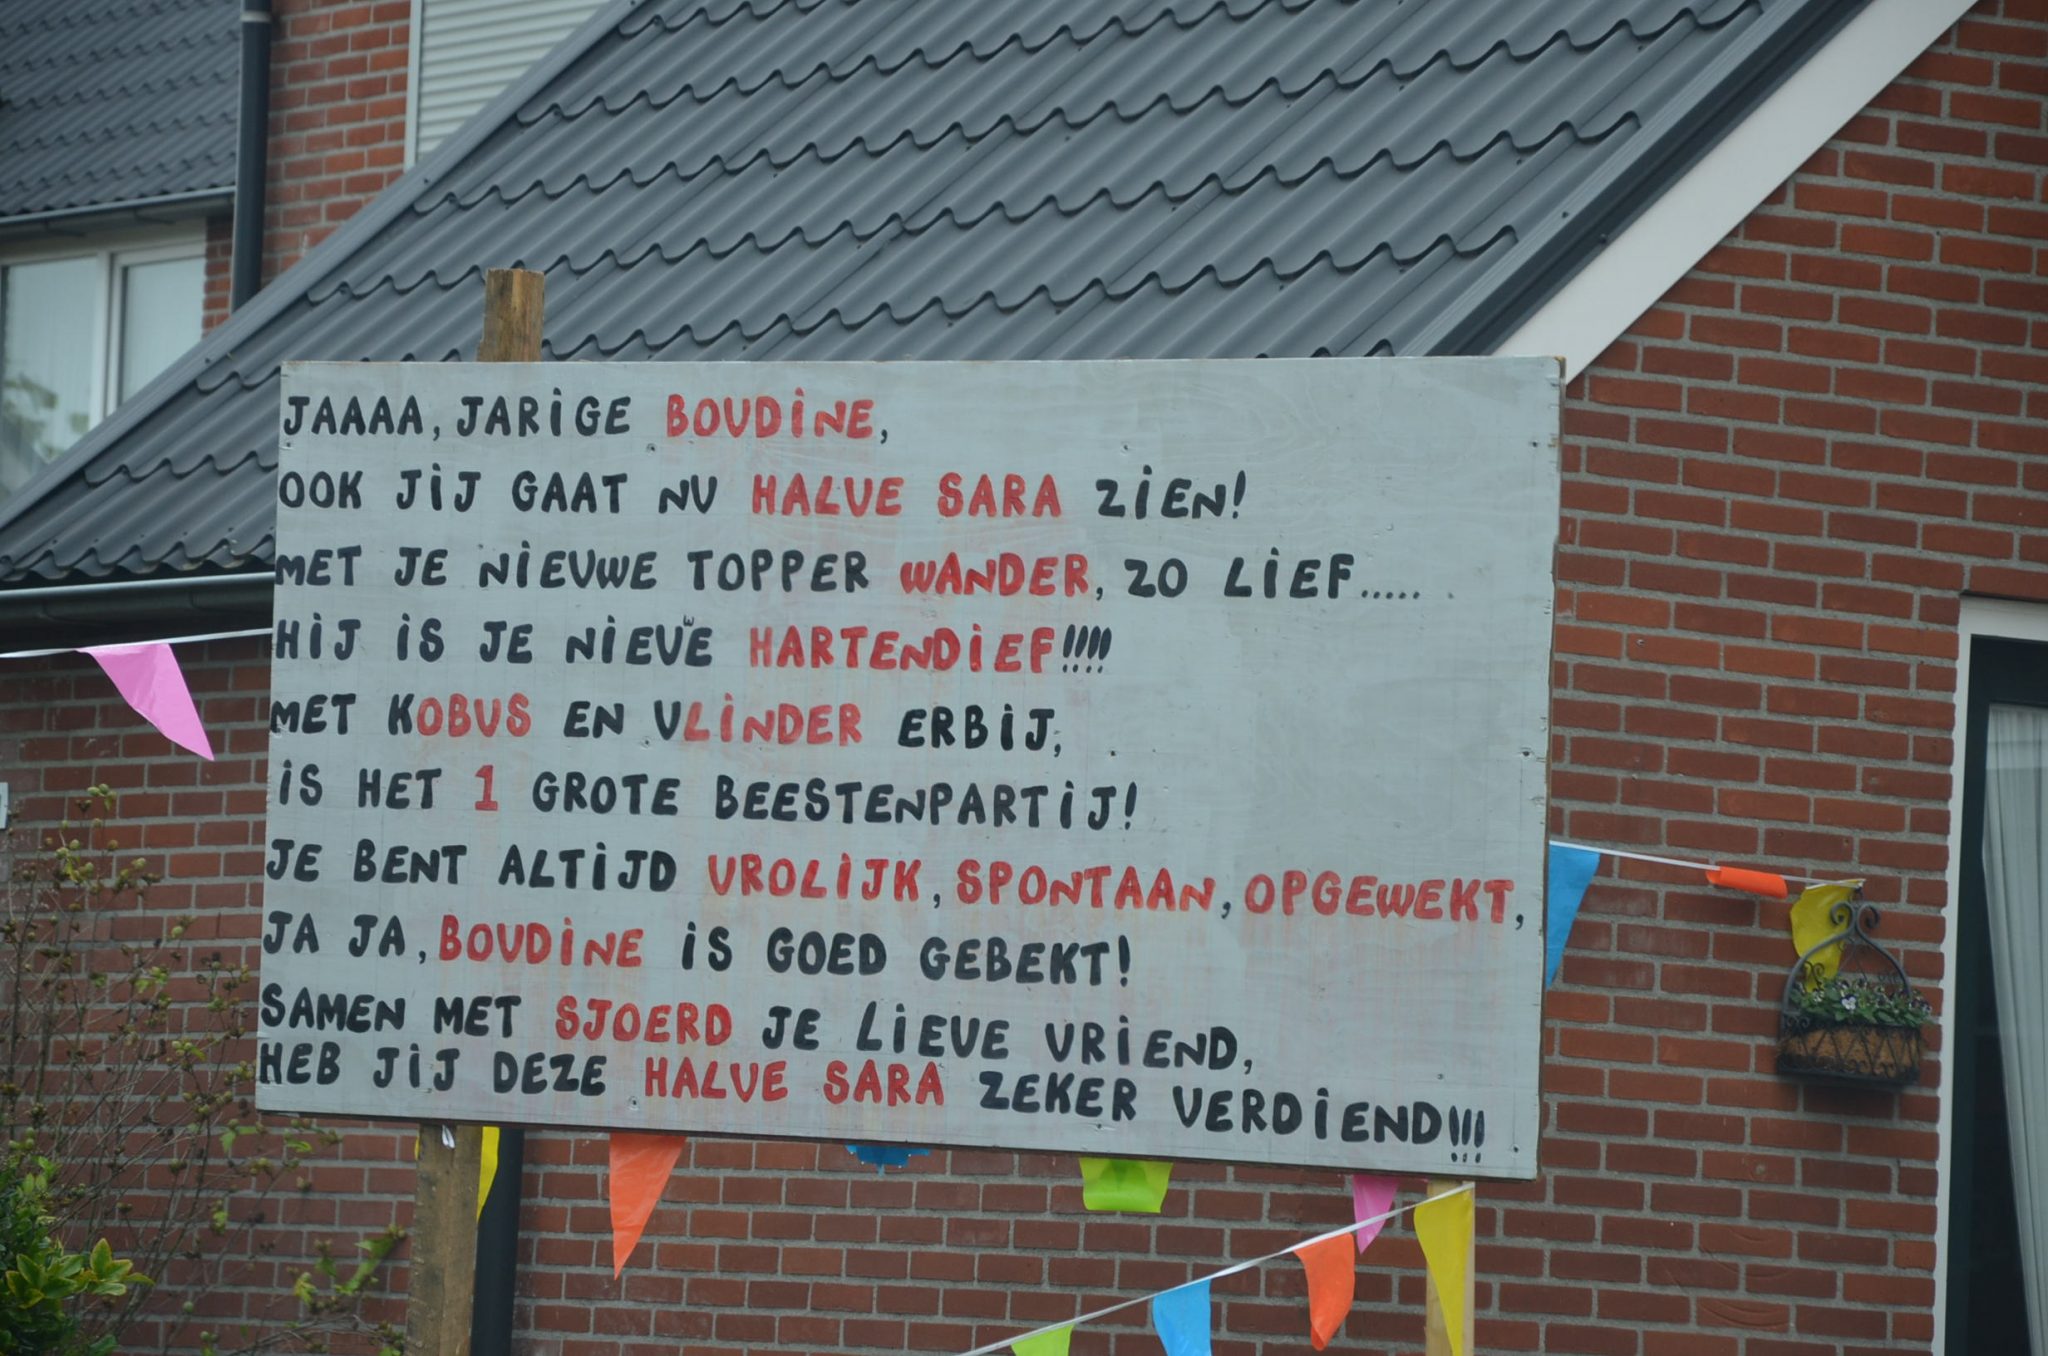 JAAAA, JARiGE BOUDiNE,
OOK JiJ GAAT NU HALVE SARA ZiEN!
MET JE NiEUWE TOPPER WANDER, ZO LiEF.....
HiJ iS JE NiEUwE HARTENDiEF!!!!
MET KOBUS EN VLiNDER ERBiJ,
iS HET 1 GROTE BEESTENPARTiJ!
JE BENT ALTiJD VROLiJK, SPONTAAN, OPGEWEKT,
JA JA, BOUDiNE iS GOED GEBEKT!
SAMEN MET SJOERD JE LiEVE VRiEND,
HEB JiJ DEZE HALVE SARA ZEKER VERDiEND!!!